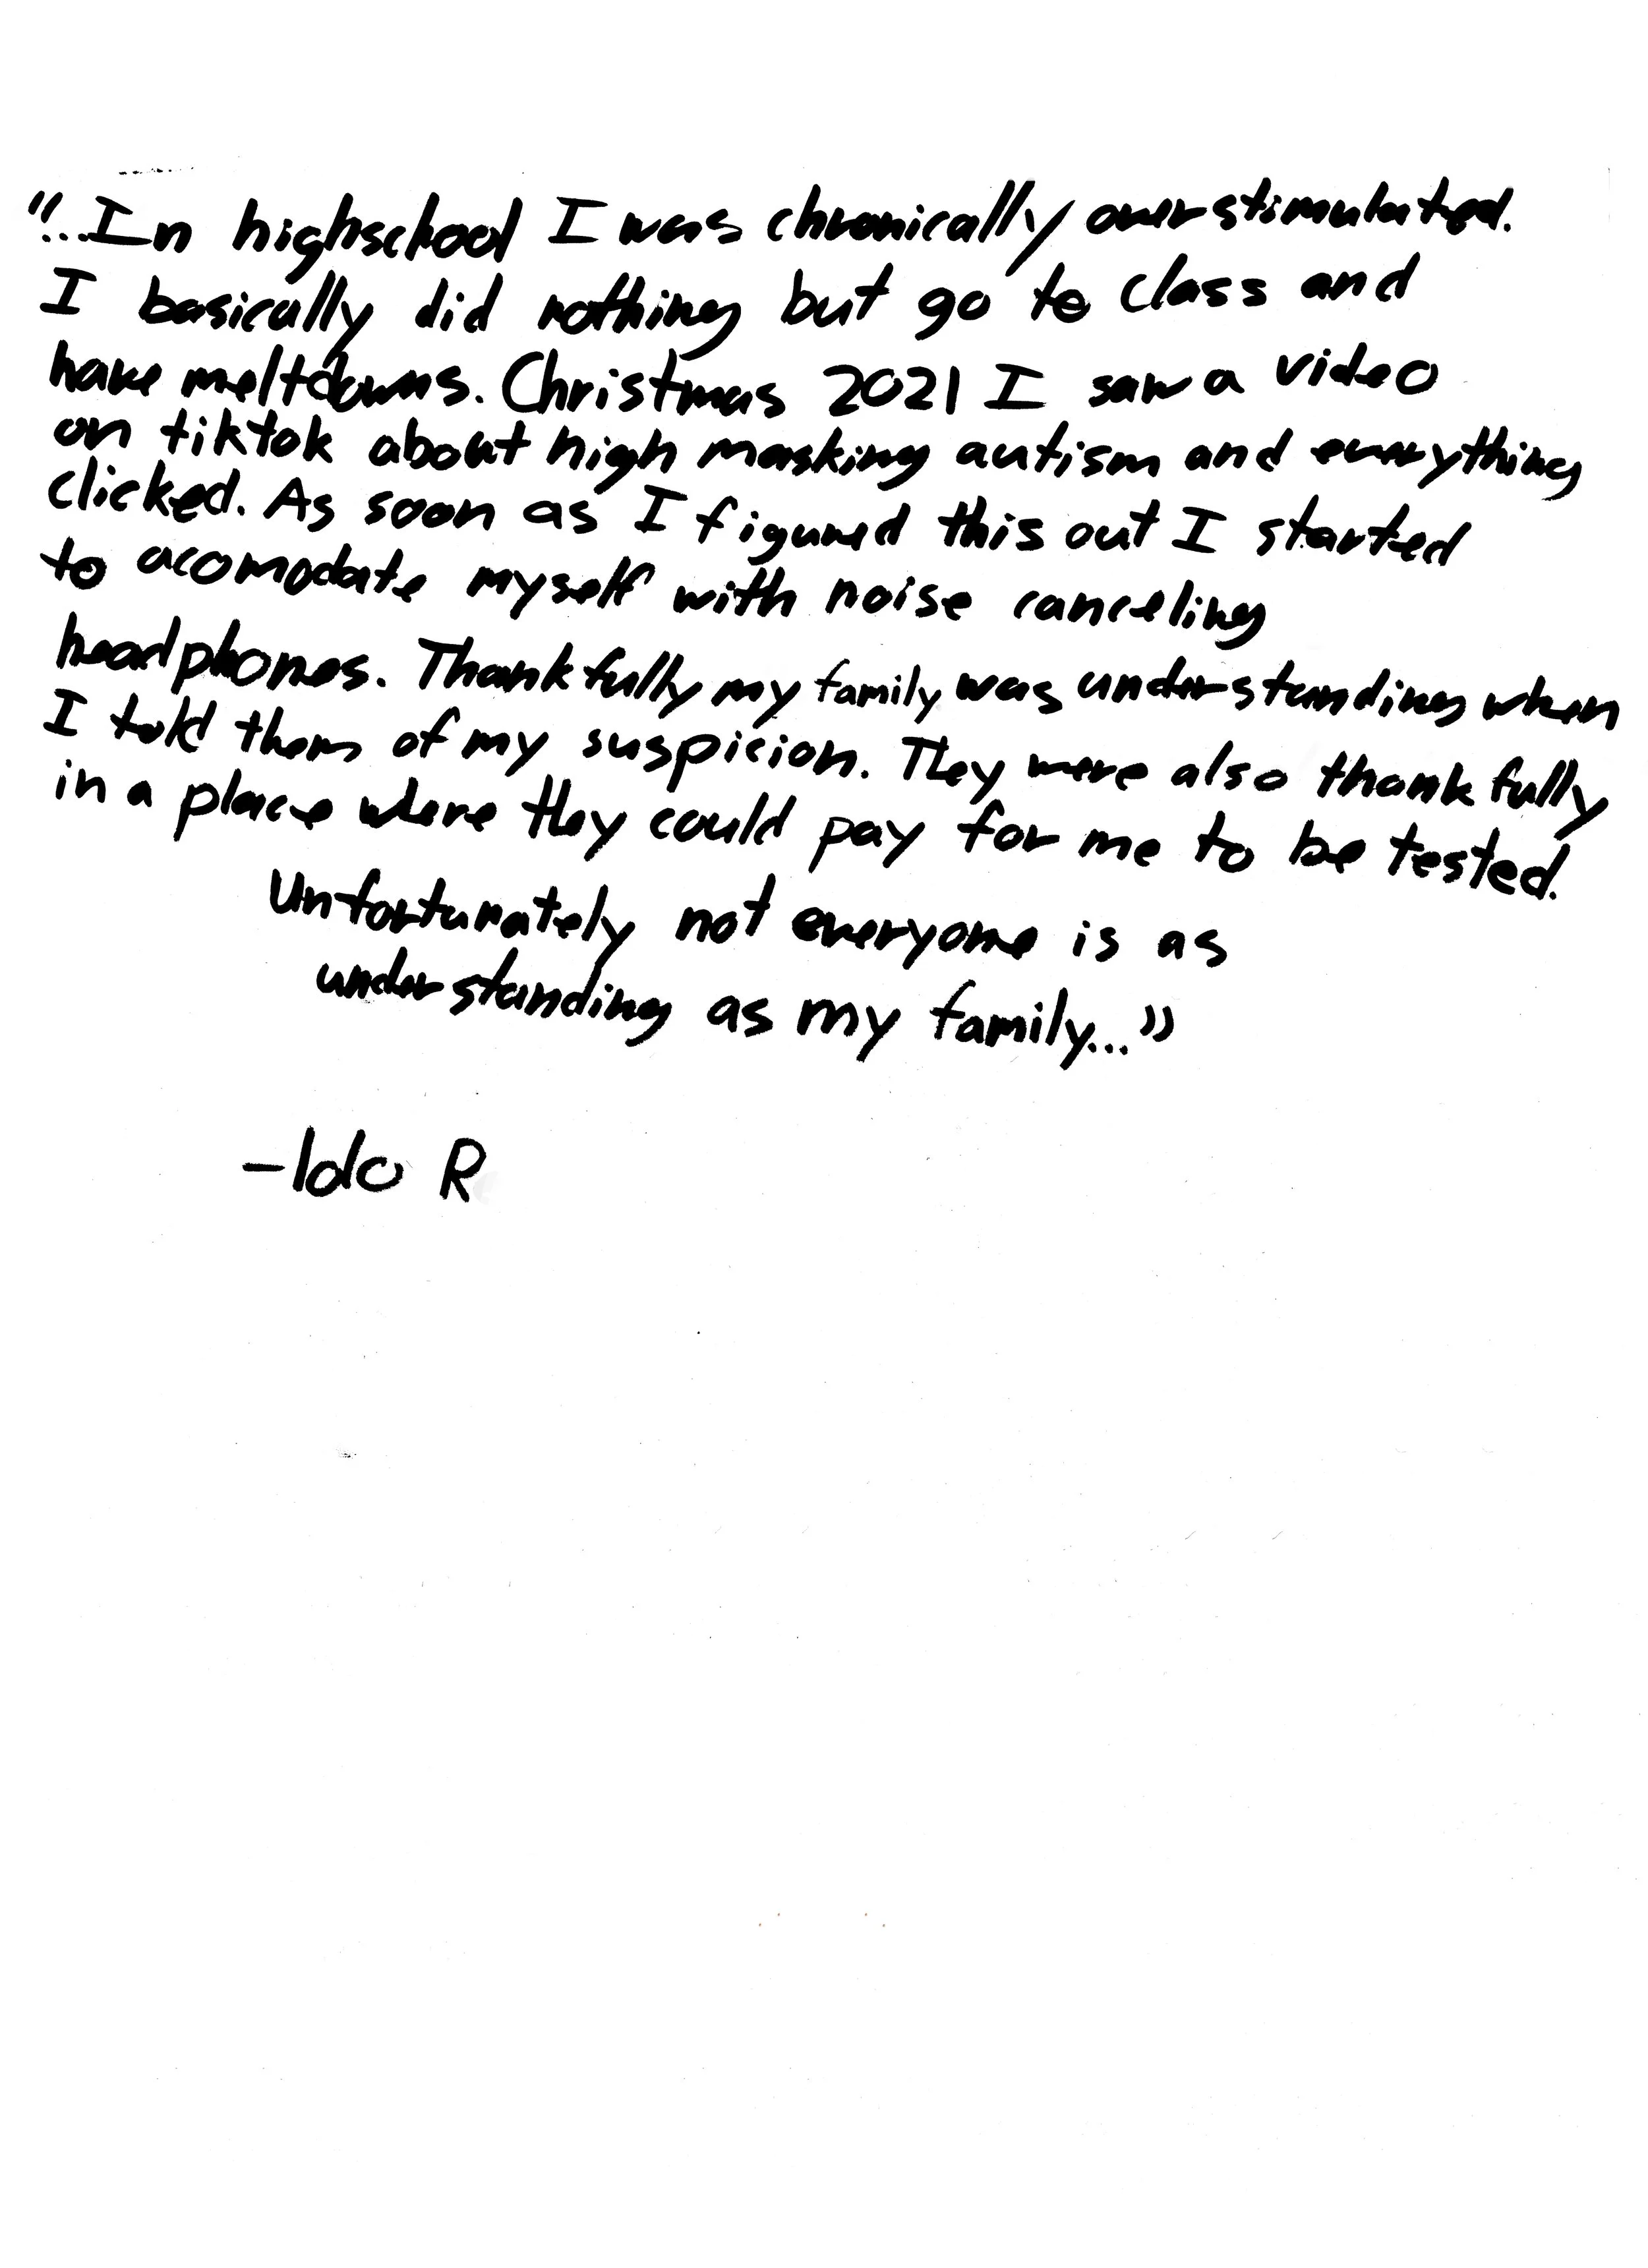 "...In highschool I was chronically overstimulated.
I basically did nothing but go to class and
have meltdowns. Christmas 2021 I saw a video
on tiktok about high masking autism and everything
clicked. As soon as I figured this out I started
to acomodate myself with noise canceling
headphones. Thankfully my family was understanding when
I told them of my suspicion. They were also thankfully
in a place where they could pay for me to be tested.
Unfortunately not everyone is as
understanding as my family..."
-Ido R